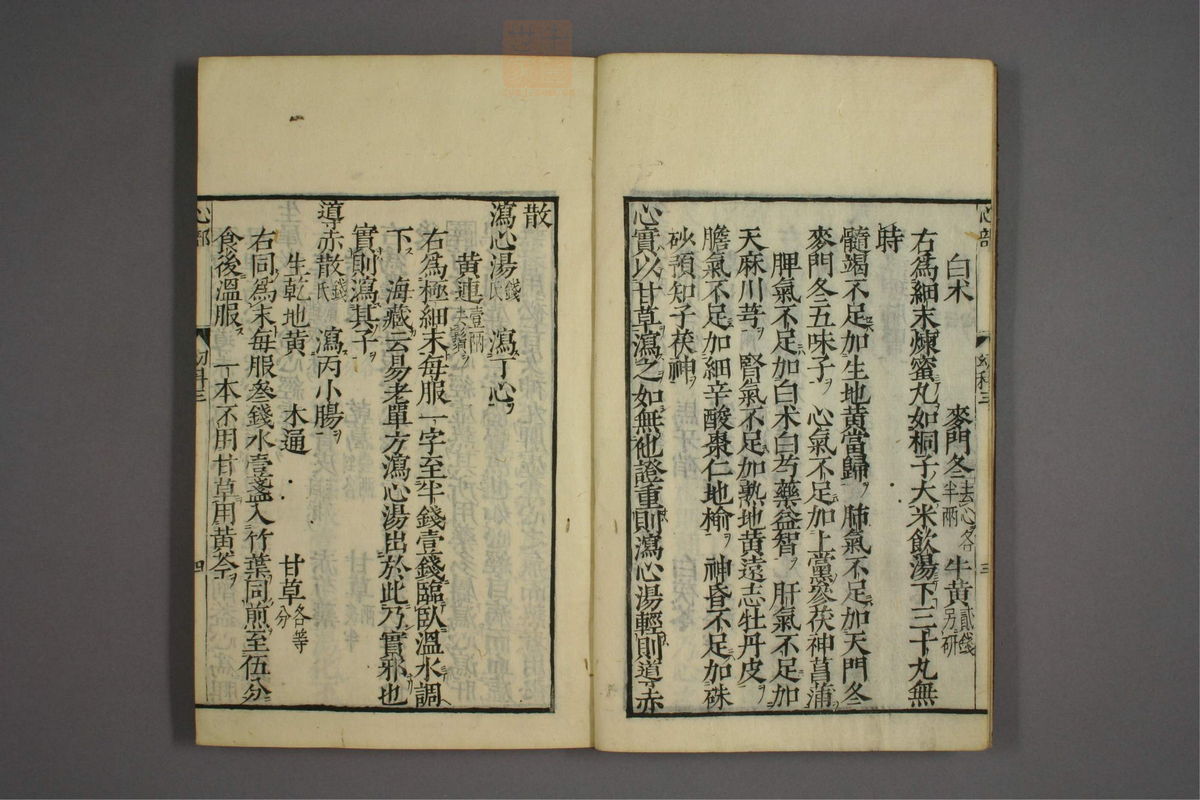 心部 幼科三 三
白术 麥門冬去心各半兩 牛黄貳錢另研
右爲細末煉蜜丸如桐子大米飲湯下三十丸無
時
髓竭不足加生地黄當歸 肺氣不足加天門冬
麥門冬五味子 心氣不足加上黨參茯神菖蒲
脾氣不足加白术白芍藥益智 肝氣不足加
天麻川芎 腎氣不足加熟地黄遠志牡丹皮
膽氣不足加細辛酸棗仁地榆 神昏不足加硃
砂預知子茯神
心實以甘草瀉之如無他證重則瀉心湯輕則導赤
散
瀉心湯錢氏 瀉丁心
黄連壹兩去鬚
右爲極細末每服一字至半錢壹錢臨臥溫水調
下 海藏云易老單方瀉心湯出於此乃實邪也
實則瀉其子
導赤散錢氏 瀉丙小腸
生乾地黄 木通 甘草各等分
右同爲末每服叄錢水壹盞入竹葉同煎至伍分
食後溫服 一本不用甘草用黄芩
心部 幼科三 四